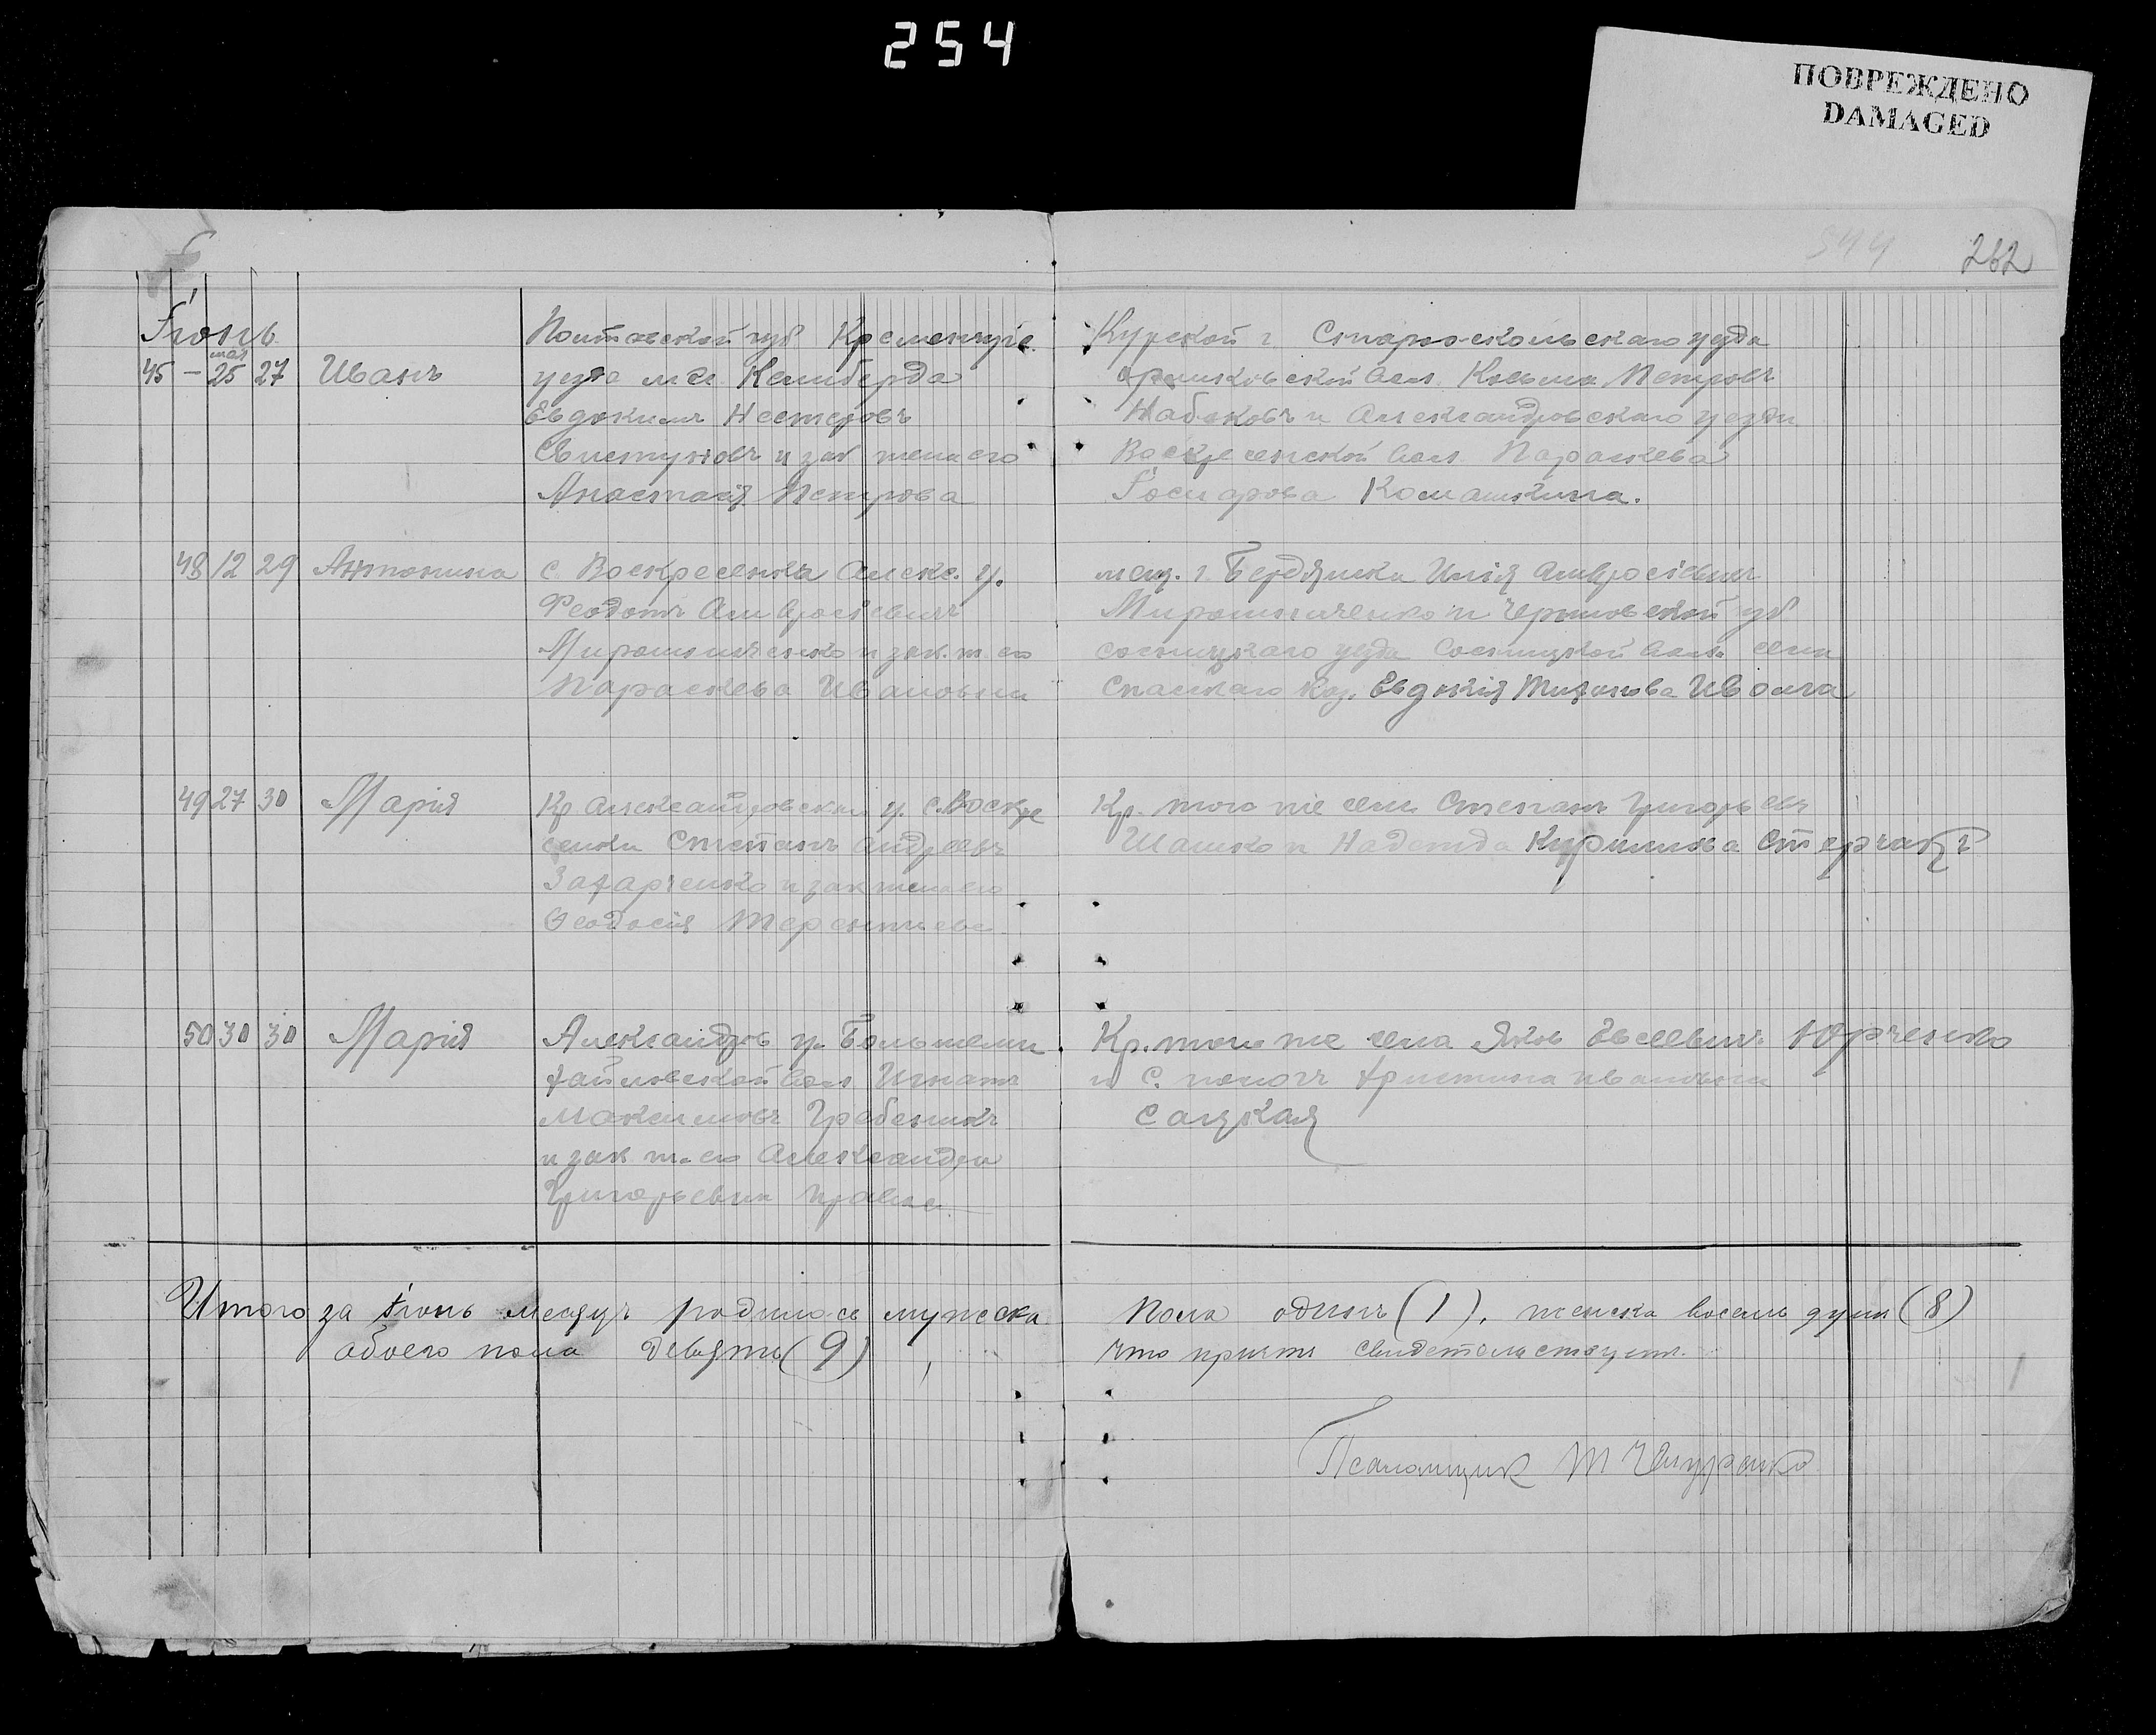 254
ПОВРЕЖДЕНО
DAMAGED
262
Іюнь
мая
45 – 25 27 Иванъ
Полтавской губ Кременчугс.
уезда мес. Келиберда
Евдокимъ Нестеровъ
Свистуновъ и зак жена его
Анастасія Петрова
Курской г. Старо-оскольскаго уезда
вол. Козьма Петровъ
Набоковъ и Александровскаго уезда
Воскресенской вол. Параскева
Комашкина.
48 12 29 Антонина
с. Воскресенка Алекс. у.
Феодотъ Амвросіевичъ
Мирошниченко и зак. ж. его
Параскева Ивановна
мещ. г. Бердянска Илія Амвросіевичъ
Мирошниченко и Черниговской губ
сосницкаго уезда Сосницкой вол. села
Спаскаго каз. Евдокія
49 27 30 Марія
Кр. Александровскаго у. с. Воскре
сенки Стефанъ Андреевъ
Захарченко и зак жена его
Феодосія Терентьева
Кр. того же села Степанъ Григорьевъ
Шашко и Надежда Кириллова
50 30 30 Марія
Александров у. Больше-ми
хайловской вол Игнатъ
Максимовъ Гребенникъ
и зак ж. его Александра
Григорьевна
Кр. того же села Яков Евсеевичъ Юрченко
и с. Христина Ивановна
Сацкая
Итого за Іюнь месяцъ родилось мужска
обоего пола девять (9)
пола одинъ (1), женска восемь душъ (8)
что причтъ свидетельствуетъ.
Псаломщик